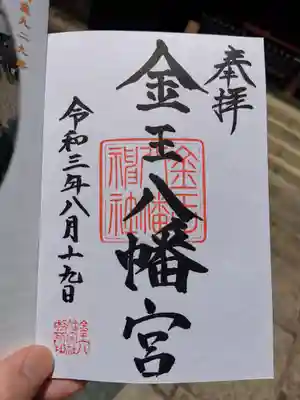 奉拝
金王八幡宮
令和三年八月十九日